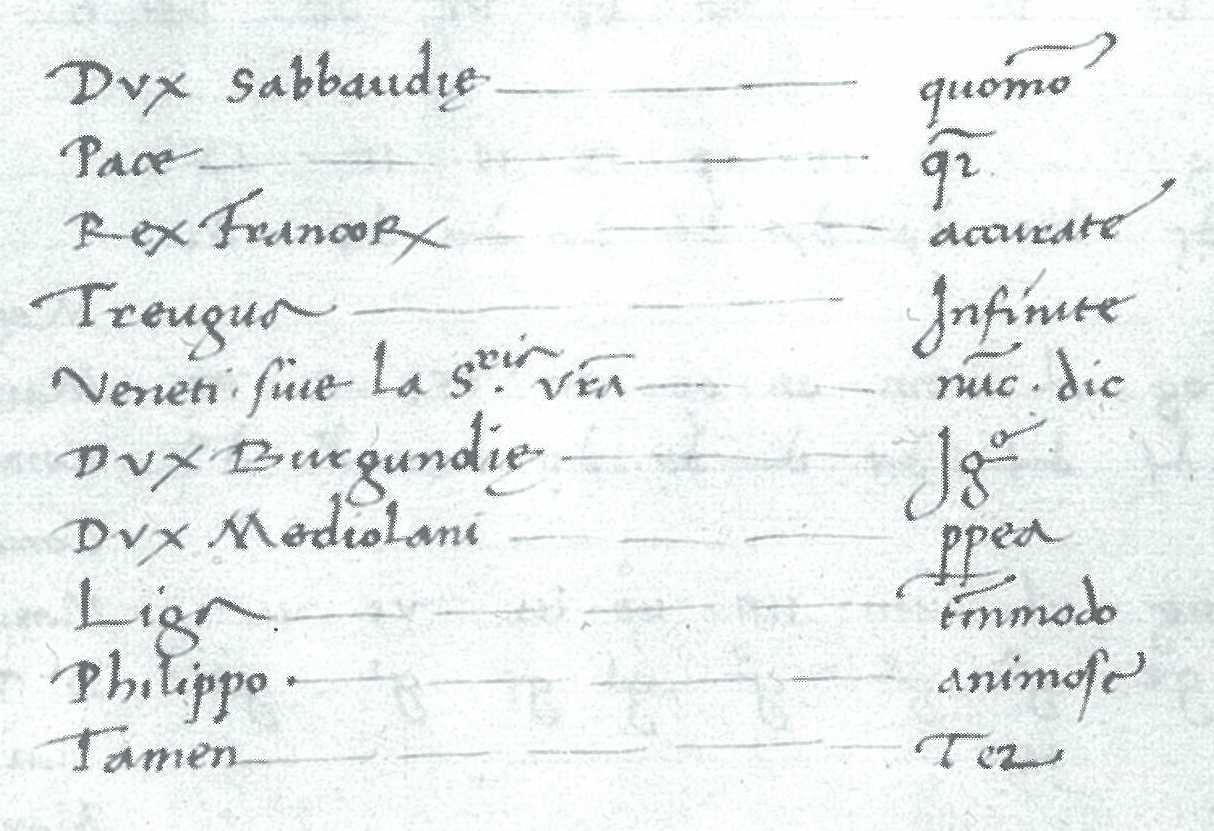 Dvx Sabbaudię quōmo
Pace qr̄
Rex Francoꝝ accurate
Treugua Infinite
Veneti · siue La S.ria vr̄a nūc · dic
Dvx Burgundię Igᵒ
Dvx Mediolani ppea
Liga tm̄modo
Philippo · animose
Tamen Ter